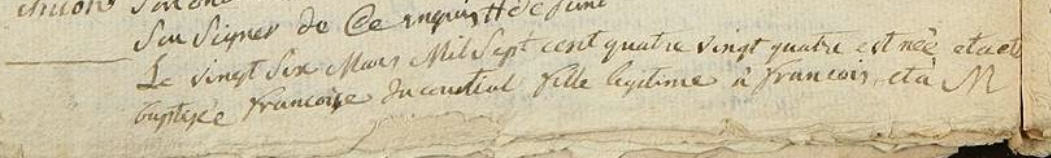 Su Signer de Ce enquis
Le vingt Six Mars Mil Sept cent quatre vingt quatre est née et a eté
baptisée francoise fille legitime à francois et à M